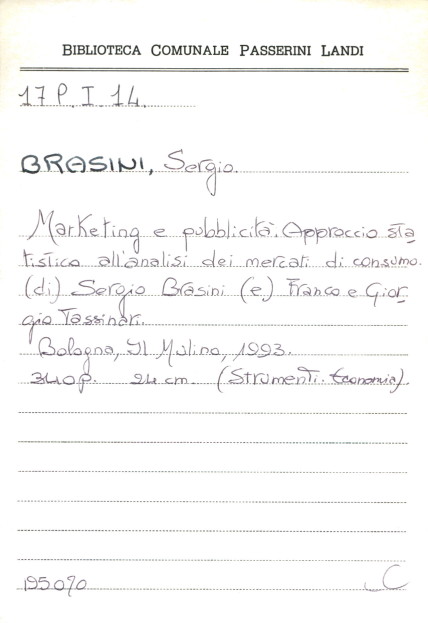 BIBLIOTECA COMUNALE PASSERINI LANDI
17 P. I. 14.
BRASINI, Sergio.
Marketing e pubblicità. Approccio sta
tistico all'analisi dei mercati di consumo.
(di) Sergio Brasini (e) Franco e Gior
gio Tassinari.
Bologna, Il Mulino, 1993.
340p. 24 cm. (Strumenti. Economia).
195070 C